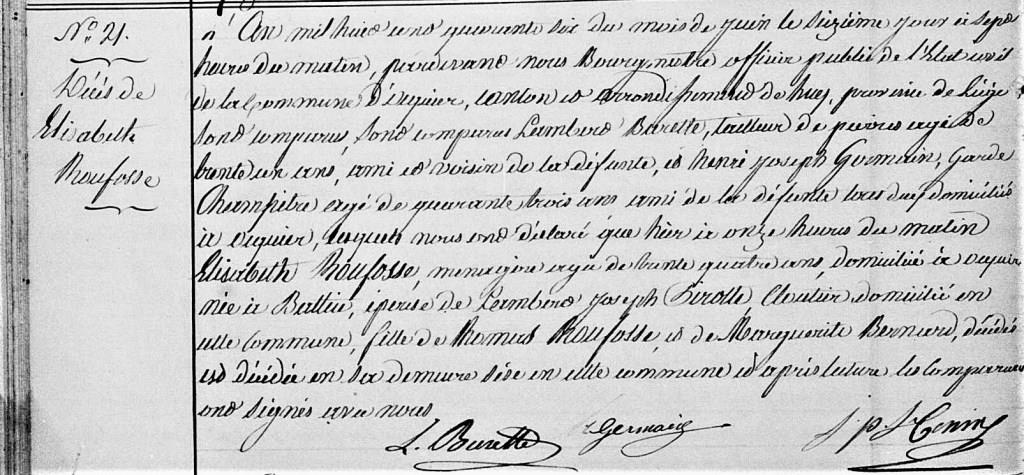 N° 21.
Décès de
Elisabeth
Roufosse
L'An mil huit cent quarante six du mois de juin le seizième jour à sept
heures du matin, pardevant nous Bourgmestre officier public de l'Etat civil
de la Commune d'Oequier, canton et arrondissement de huy, province de Liége
sont comparus, sont comparus Lambert Burette, tailleur de pierres agé de
trente un ans, ami et voisin de la défunte, et henri joseph Germain, Garde
Champêtre agé de quarante trois ans ami de la défunte tous deux domiciliés
à ocquier, lesquels nous ont déclaré que hier à onze heures du matin
Elisabeth Roufosse, menagère agée de trente quatre ans, domiciliée à ocquier
née à epouse de Lambert joseph Cloutier domicilié en
cette commune, fille de Thomas Roufosse, et de Marguerite Bernard, décédés
est décédée en sa demeure sise en cette commune et après lecture les Comparants
ont signés avec nous
L. Burette Germain